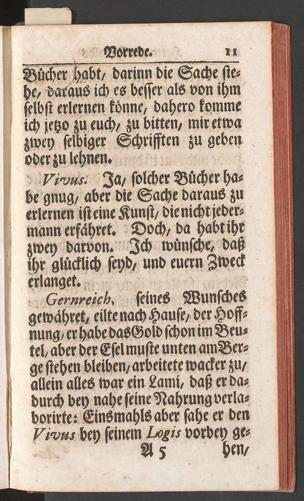 Vorrede. 11
Bücher habt, darinn die Sache ste-
he, daraus ich es besser als von ihm
selbst erlernen könne, dahero komme
ich jetzo zu euch, zu bitten, mir etwa
zwey selbiger Schrifften zu geben
oder zu lehnen.
Vivus. Ja, solcher Bücher ha-
be gnug, aber die Sache daraus zu
erlernen ist eine Kunst, die nicht jeder-
mann erfähret. Doch, da habt ihr
zwey darvon. Ich wünsche, daß
ihr glücklich seyd, und euern Zweck
erlanget.
Gernreich. seines Wunsches
gewähret, eilte nach Hause, der Hoff-
nung, er habe das Gold schon im Beu-
tel, aber der Esel muste unten am Ber-
ge stehen bleiben, arbeitete wacker zu,
allein alles war ein Lami, daß er da-
durch bey nahe seine Nahrung verla-
borirte: Einsmahls aber sahe er den
Vivus bey seinem Logis vorbey ge-
A 5 hen,